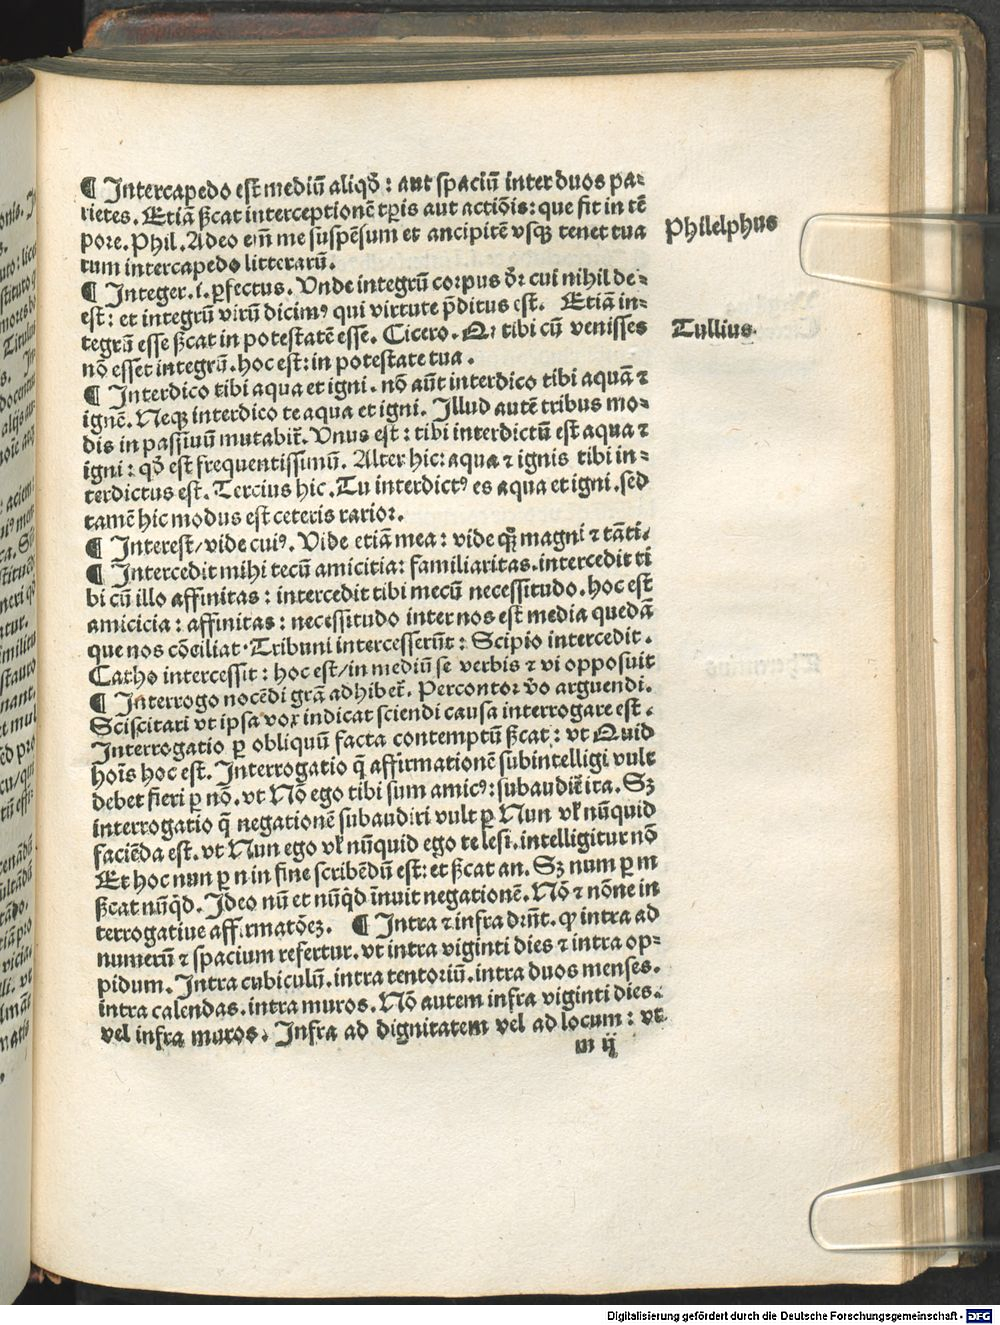 ¶ Intercapedo est mediū aliqd̄ : aut spaciū inter duos pa⸗
rietes. Etiā ſſcat interceptionē tp̄is aut actiōis: que fit in tē
pore. Phil. Adeo em̄ me suspēsum et ancipitē vsqꝫ tenet tua
rum intercapedo litterarū.
Philelphus
¶ Integer. i. ꝑfectus. Vnde integrū corpus dr̄ cui nihil de⸗
est: et integrū virū dicimꝰ qui virtute p̄ditus est. Etiā in⸗
tegrū esse ſſcat in potestatē esse. Cicero. Qꝛ tibi cū venisses
nō esset integrū. hoc est: in potestate tua.
Tullius
¶ Interdico tibi aqua et igni. nō aūt interdico tibi aquā ⁊
ignē. Neqꝫ interdico te aqua et igni. Illud autē tribus mo⸗
dis in passiuū mutabit̄. Vnus est: tibi interdictū est aqua ⁊
igni: qd̄ est frequentissimū. Alter hic: aqua ⁊ ignis tibi in⸗
terdictus est. Tercius hic. Tu interdictꝰ es aqua et igni. sed
tamē hic modus est ceteris rarior.
¶ Interest/ vide cuiꝰ. Vide etiā mea: vide qꝫ magni ⁊ tāti/
¶ Intercedit mihi tecū amicitia: familiaritas. intercedit ti
bi cū illo affinitas: intercedit tibi mecū necessitudo. hoc est
amicicia: affinitas: necessitudo inter nos est media quedā
que nos cōciliat. Tribuni intercesserūt: Scipio intercedit.
Catho intercessit: hoc est/ in mediū se verbis ⁊ vi opposuit
¶ Interrogo nocēdi gr̄a adhibet̄. Percontor v̄o arguendi.
Sciscitari vt ipsa vox indicat sciendi causa interrogare est.
Interrogatio ꝑ obliquū facta contemptū ſſcat: vt Quid
hoīs hoc est. Interrogatio q̄ affirmationē subintelligi vult
debet fieri ꝑ nō. vt Nō ego tibi sum amicꝰ: subaudit̄ ita. Sꝫ
interrogatio q̄ negationē subaudiri vult ꝑ Nun vł nūquid
faciēda est. vt Nun ego vł nūquid ego te lesi. intelligitur nō
Et hoc nun ꝑ n in fine scribēdū est: et ſſcat an. Sꝫ num ꝑ m
ſſcat nūqd. Ideo nū et nūqd īnuit negationē. Nō ⁊ nōne in
terrogatiue affirmatōeꝫ. ¶ Intra ⁊ infra drn̄t. qꝛ intra ad
numerū ⁊ spacium refertur. vt intra viginti dies ⁊ intra op⸗
pidum. Intra cubiculū. intra tentoriū. intra duos menses.
intra calendas. intra muros. Nō autem infra viginti dies.
vel infra muros. Infra ad dignitatem vel ad locum: vt
m ij
Digitalisierung gefördert durch die Deutsche Forschungsgemeinschaft - DFG